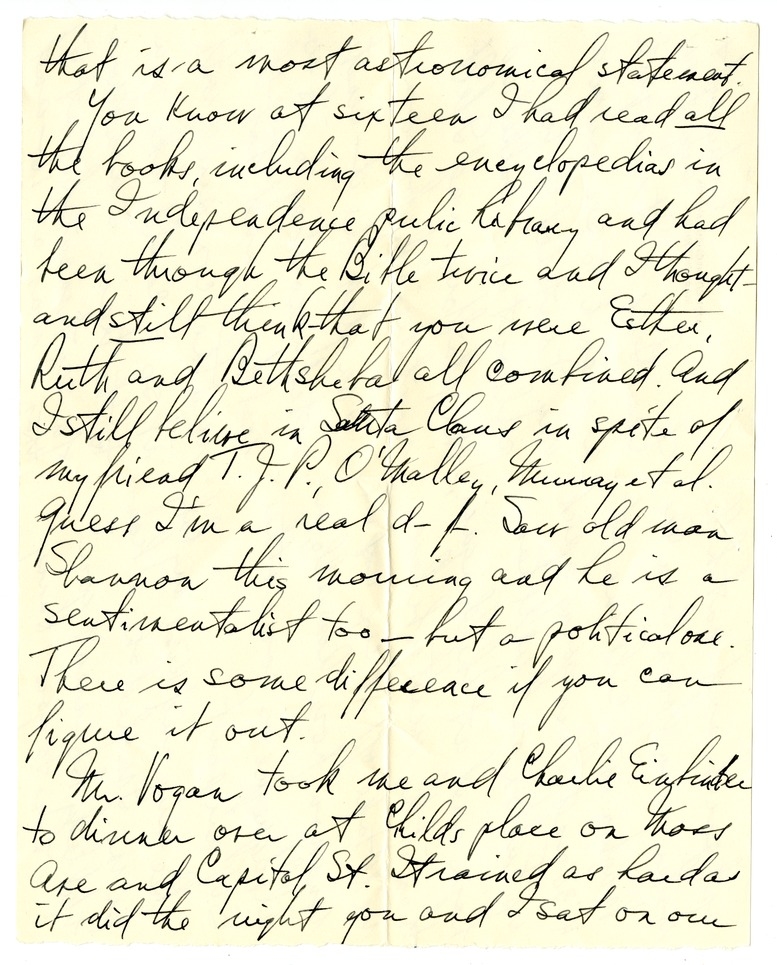 that is a most astronomical statement.
You know at sixteen I had read all
the books, including the encyclopedias in
the Independence pulic library and had
been through the Bible twice and I thought-
and still think-that you were Esther,
Ruth and Bethsheba all combined. And
I still believe in Santa Claus in spite of
my friend T.J.P., O'Malley, Murray et al.
Guess I'm a real d- f-. Saw old man
Shannon this morning and he is a
sentimentalist too - but a political one.
There is some difference if you can
figure it out.
Mr. Vogan took me and Charlie
to dinner over at Childs place on Mass
Ave and Capitol St. It rained as hard as
it did the night you and I sat on our